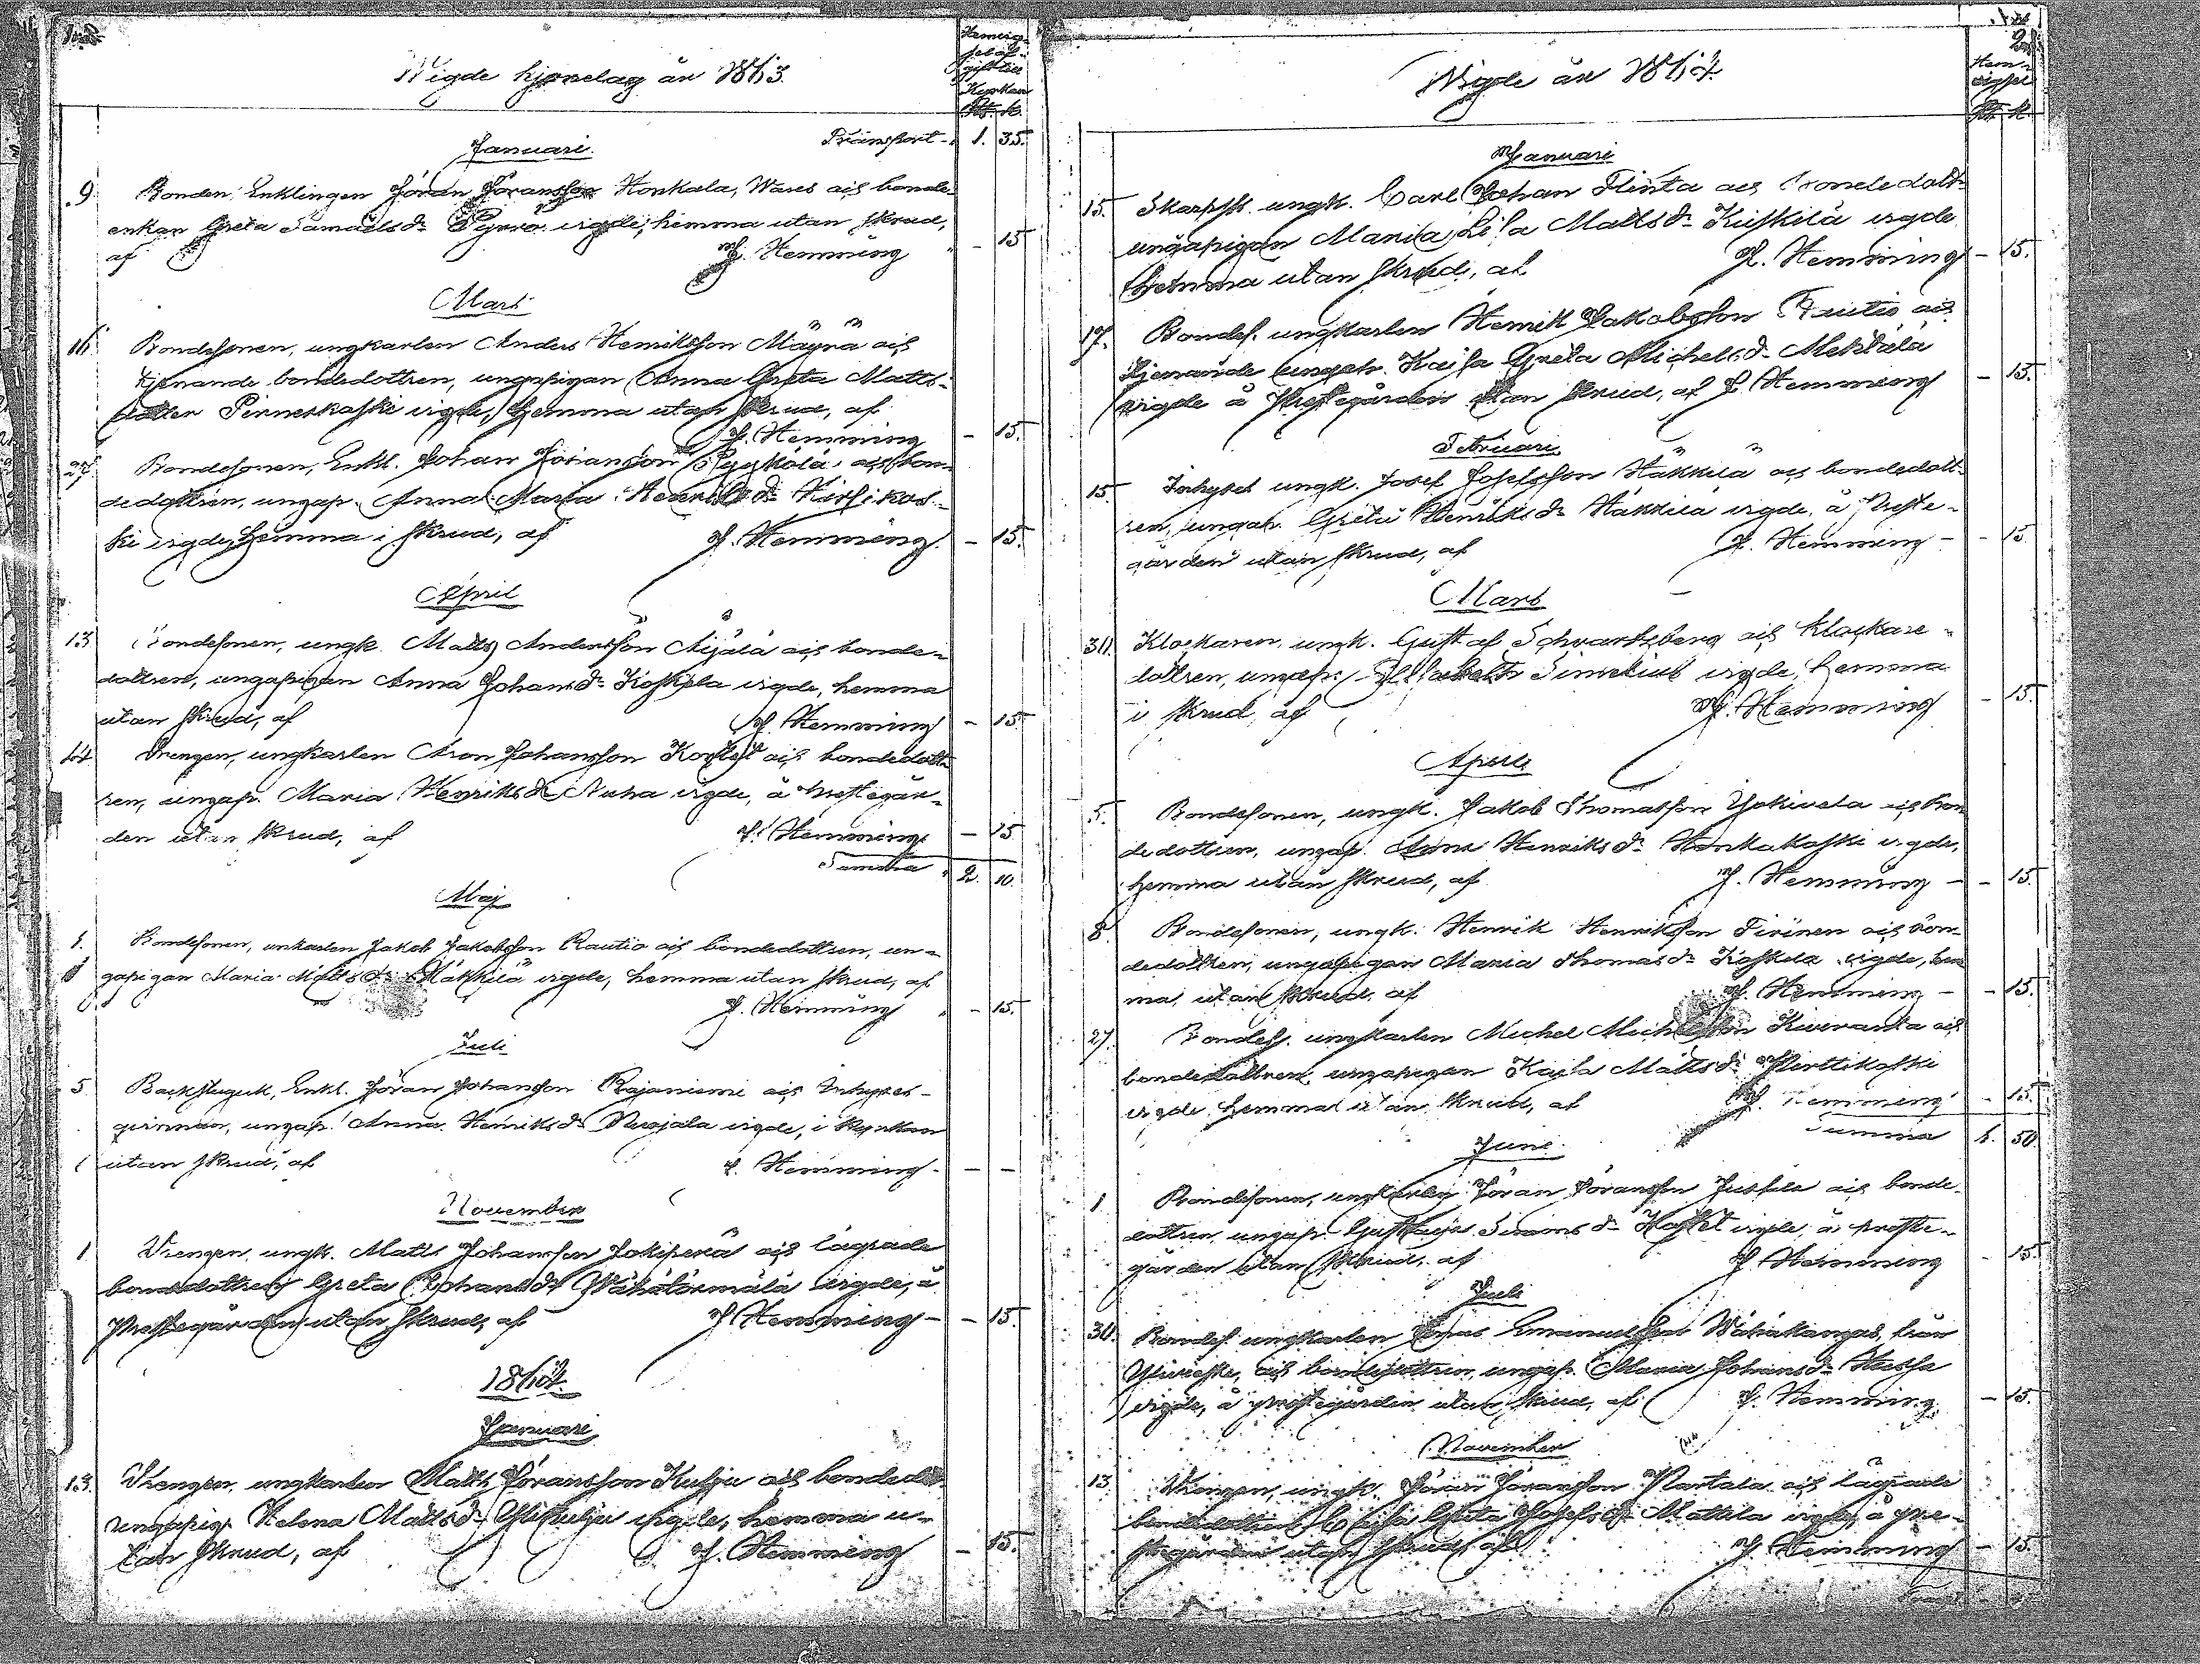 Wigde hjonelag år 1863.
Transport - 1. 35.
Januari.
9 Bonden, Enklingen Jöran Jöransson Honkala, Wares och bonde
enkan Greta Samuelsdr Pyrrö wigde, hemma utan skrud,
af J. Hemming - 15
Mars
16 Bondesonen, ungkarlen Anders Henriksson Mäyrä och
tjenande bondedottren, ungapigan Anna Greta Matts-
dotter Pinneskoski wigde, hemma utan skrud, af
J. Hemming - 15.
27 Bondesonen, Enkl. Johan Johansson Pyykölä och bon-
dedottren, ungap. Anna Maria Henriksdr Kirsikos-
ki wigde, hemma i skrud, af J. Hemming. - 15.
April
13 Bondesonen, ungk. Matts Andersson Äijälä och bonde-
dottren, ungapigan Anna Johansdr Koskela wigde, hemma
utan skrud, af J. Hemming - 15
Drengen, ungkarlen Aron Johansson och bondedott-
ren, ungap. Maria Henriksdr Nuha wigde, å Prestegår-
den utan skrud, af J. Hemming - 15
Summa 2. 10.
Maj
1. Bondesonen, unkarlen Jakob Jakobsson Rautio och bondedottren, un-
gapigan Maria Mattsdr Häkkilä wigde, hemma utan skrud, af
J. Hemming - 15.
Juli
5 Backstuguk, Enkl. Jöran Johansson Rajaniemi och Inhyses-
qvinnan, ungap. Anna Henriksdr wigde, i kyrkan
utan skrud, af J. Hemming - - -
November
1 Drengen, ungk. Matts Johansson Jokiperä och lagrade
bondedottren Greta Johansdr Wähätörmälä wigde, å
Prestegården utan skrud, af J. Hemming - - 15.
1864.
Januari
13. Drengen, ungkarlen Matts Jöransson Kulju och bonded.
ungapig. Helena Mattsdr Ylikulju wigde, hemma u-
tan skrud, af J. Hemming - 15.
Wigde år 1864.
Januari
15. Skarpsk. ungk. Carl Johan Flinta och bondedott.
ungapigan Maria Lisa Mattsdr Kuskilä wigde
hemma utan skrud, af J. Hemming - 15.
17. Bondes. ungkarlen Henrik Jakobsson Rautio och
tjenande ungap. Kajsa Greta Michelsdr Mehtälä
wigde å Prestegården utan skrud, af J. Hemming - 15.
Februari
15. Inhyses ungk. Josef Josefsson Häkkilä och bondedott-
ren, ungap. Greta Henriksdr Häkkilä wigde, å Preste-
gården utan skrud, af J. Hemming - - 15
Mars
30. Klockaren, ungk. Gustaf Schvartzberg och klockare-
dottren, ungap. Elisabeth Simelius wigde, hemma
i skrud, af J. Hemming - 15
April
5. Bondesonen, ungk. Jakob Thomasson Yokivela och bon-
dedottren, ungap. Anna Henriksdr Honkakoski wigde,
hemma utan skrud, af J. Hemming - - 15.
8 Bondesonen, ungk. Henrik Henriksson Tirinen och bon-
dedottren, ungapigan Maria Thomasdr Koskela wigde, hem
ma, utan skrud, af J. Hemming - - 15.
27. Bondes. ungkarlen Michel Michelsson Kiveranta och
bondedottren, ungapigan Kajsa Mattsdr Perttikoski
wigde, hemma utan skrud, af J. Hemming - 15.
Summa 50
Juni
1 Bondesonen, ungkarlen Jöran Jöransson Jussila och bonde-
dottren, ungap. Simonsdr wigde, å preste-
gården utan skrud, af J. Hemming - 15
Juli
30. Bondes. ungkarlen Jonas Emanuelsson Wähäkangas, från
Ylivieska, och bondedottren, ungap. Maria Johansdr
wigde, å prestegården utan skrud, af J. Hemming - 15
November
13. Drengen, ungk. Jöran Jöransson och lägrade
bondedottren Cajsa Greta Josefsdr Mattila wigde, å Pre-
stegården utan skrud, af J. Hemming - 15.